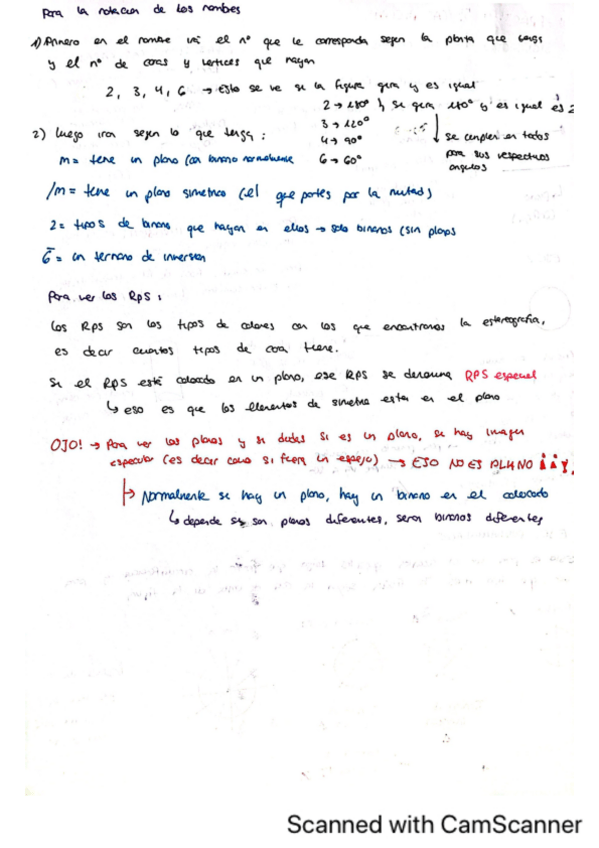 Para la notacion de los nombres
1) Primero en el nombre va el nº que le corresponda segun la planta que tenga
y el nº de caras y vertices que hayan
2, 3, 4, 6 → Esto se ve si la figura gira y es igual
2 → 180° se gira 180° y es igual es 2
3 → 120°
4 → 90°
6 → 60°
se cumplen en todos
para sus respectivos
angulos
2) Luego iran segun lo que tenga:
m = tiene un plano (con binario normalmente
/m = tiene un plano simetrico (el que partes por la mitad)
2 = tipos de binarios que hayan en ellos → solo binarios (sin planos
6̅ = un ternario de inversion
Para ver los RPS:
Los RPS son los tipos de colores con los que encontramos la estereografia,
es decir cuantos tipos de cara tiene.
Si el RPS está colocado en un plano, ese RPS se denomina RPS especial
↳ eso es que los elementos de simetria esta en el plano
OJO! → Para ver los planos y si dudas si es un plano, si hay imagen
especular (es decir como si fuera un espejo) → ESO NO ES PLANO
Normalmente si hay un plano, hay un binario en el colocado
↳ depende si son planos diferentes, seran binarios diferentes
Scanned with CamScanner